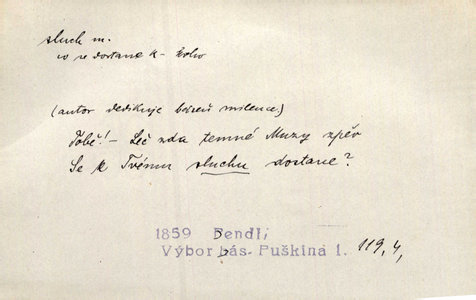 sluch m.
co se dostane k- koho
(autor dedikuje báseň milence)
Tobě! – Leč zda temné Muzy zpěv
Se k Tvému sluchu dostane?
1859 Bendl,
Výbor bás. Puškina 1. 119,4,